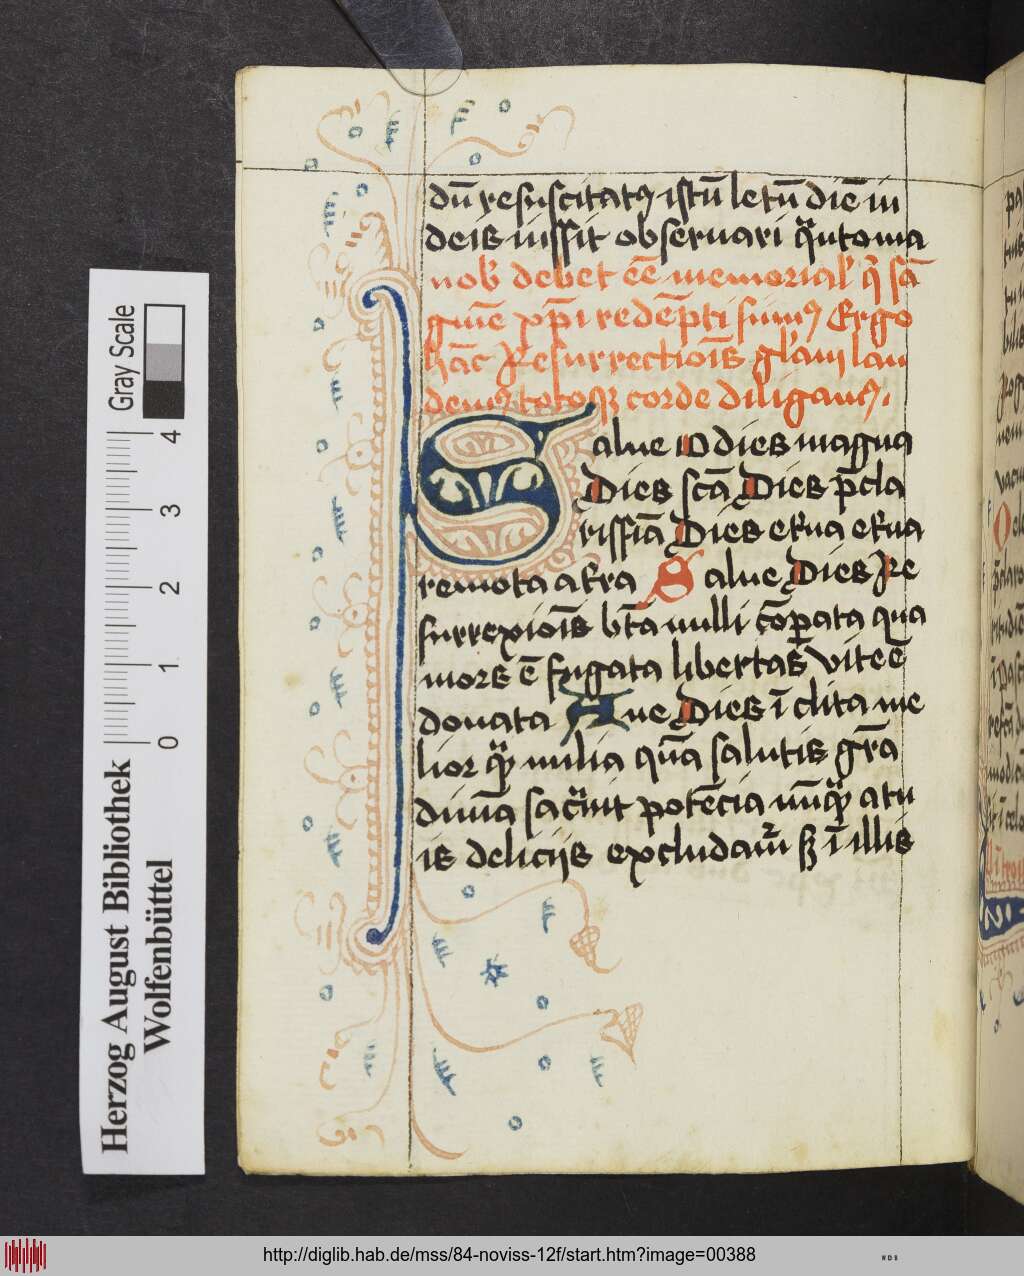 dū resuscitatꝰ istū letū diē in
deis iussit obseruari q̈nto ma
nobꝭ debet eē memorialꝭ q̢ sā
gwīe xp̄i redēpti sumꝰ Ergo
hāc Resurrectiōis gl̄am lau
demꝰ totoqꝫ corde diligamꝰ.
Salue o dies magna
Dies scā Dies p̄cla
rissīa Dies et̾na et̾na
remota at̾ra Salue Dies Re
surrexiōis btā nulli cōꝑata qua
mors ē fugata libertas vite ē
donata Aue Dies īclita me
lior q̈ꝫ milia quā salutis gr̄a
diuīa sac̾uit potēcia nūq̈ꝫ a tu
is delicijs excludam̾ sꝫ ī illis
Gray Scale
4
3
2
1
0
Herzog August Bibliothek
Wolfenbüttel
http://diglib.hab.de/mss/84-noviss-12f/start.htm?image=00388